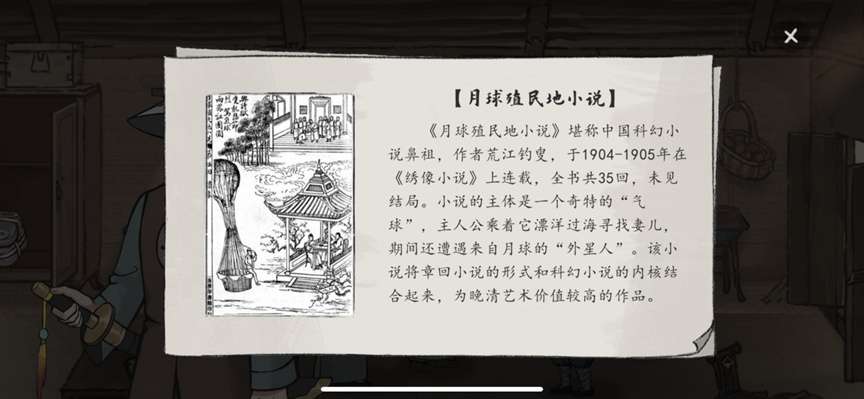 【月球殖民地小说】
《月球殖民地小说》堪称中国科幻小
说鼻祖，作者荒江钓叟，于1904-1905年在
《绣像小说》上连载，全书共35回，未见
结局。小说的主体是一个奇特的“气
球”，主人公乘着它漂洋过海寻找妻儿，
期间还遭遇来自月球的“外星人”。该小
说将章回小说的形式和科幻小说的内核结
合起来，为晚清艺术价值较高的作品。